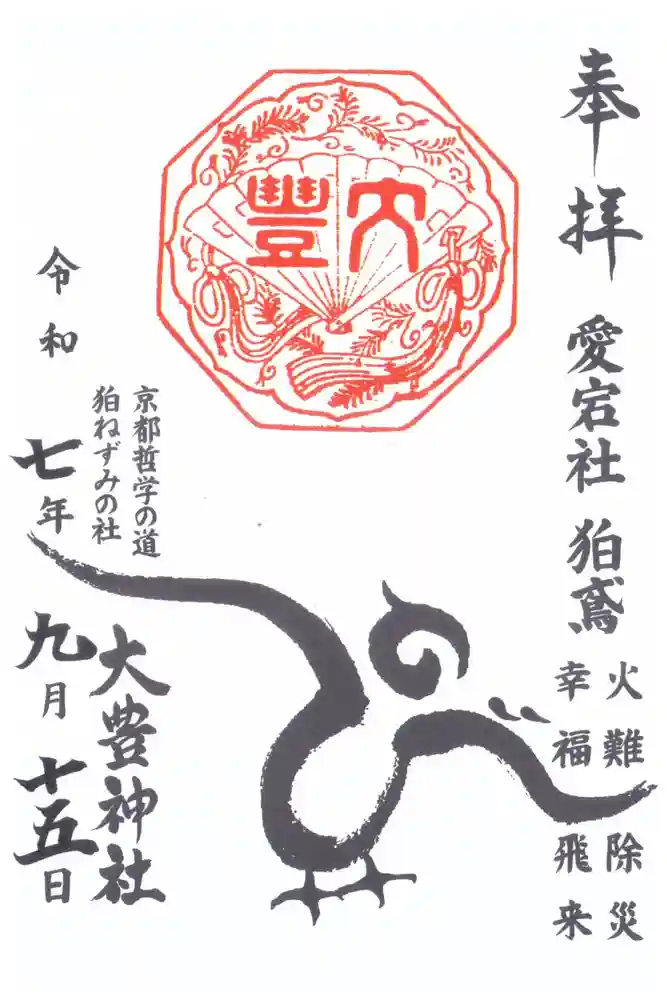 奉拝
愛宕社 狛鳶
火難除災
幸福飛来
大豐
京都哲学の道
狛ねずみの社
大豊神社
令和七年九月十五日